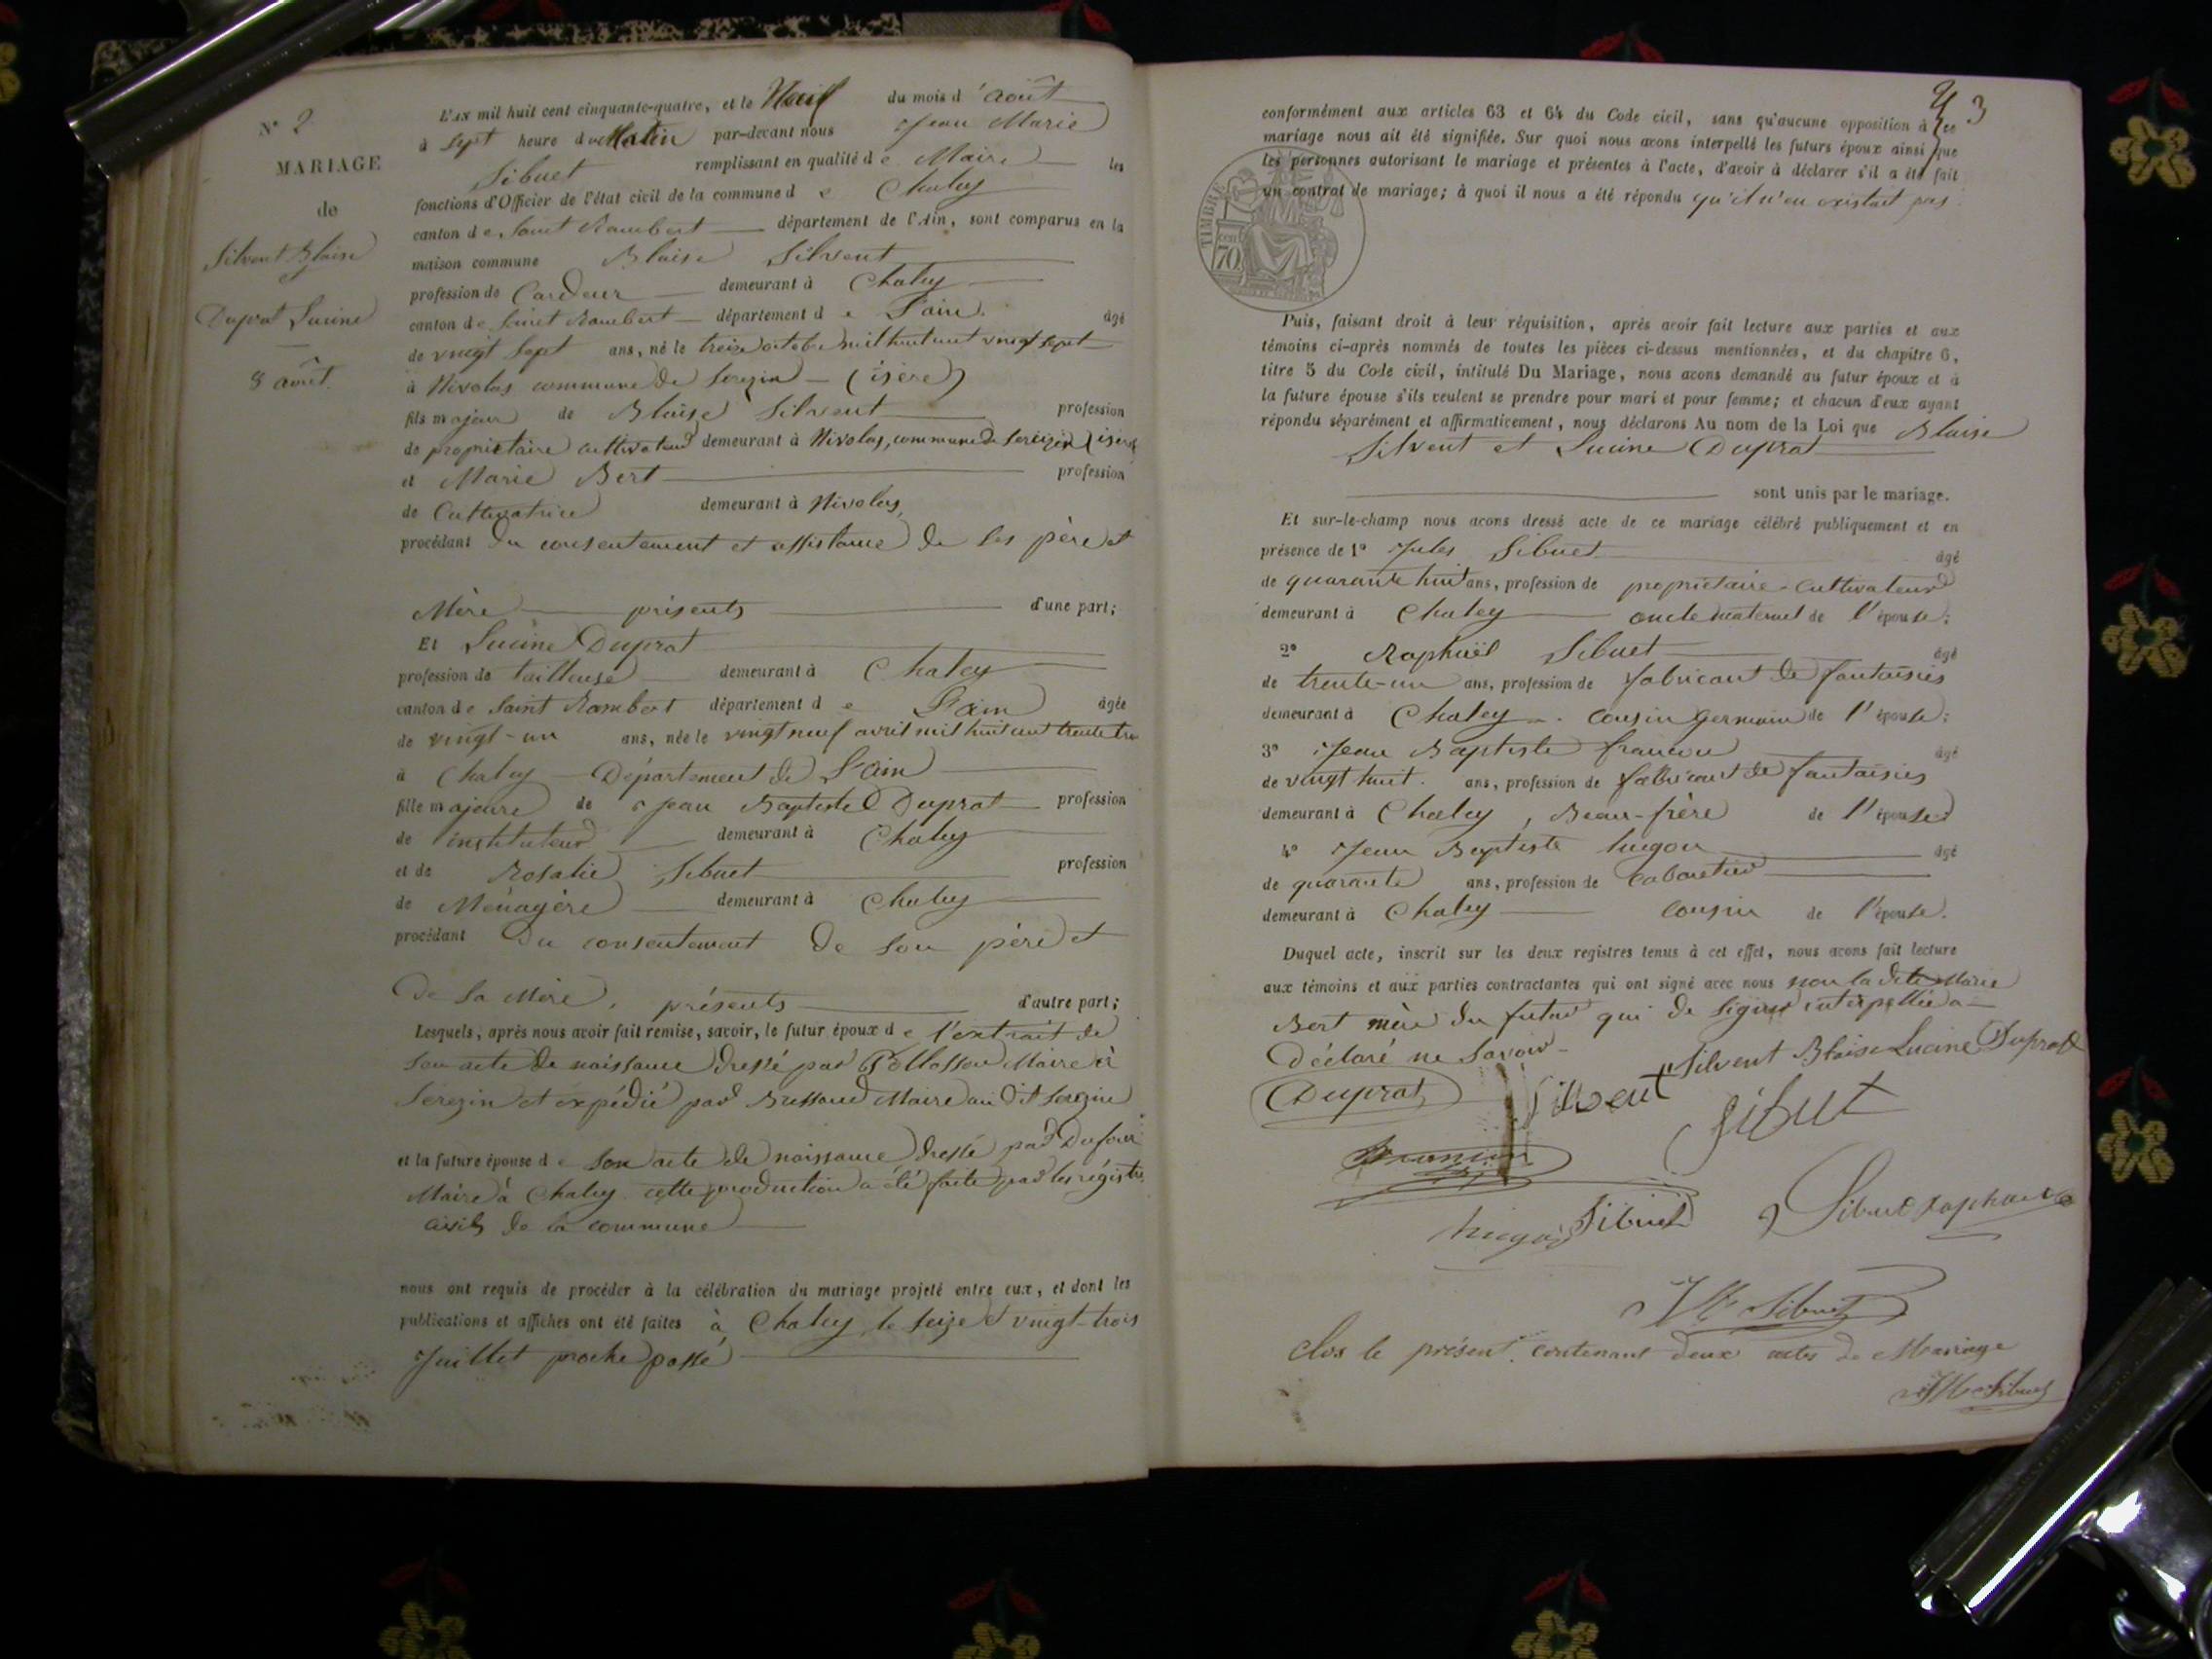 N° 2
MARIAGE
de
Silvent Blaise
et
Duprat Lucine
8 août.
L'AN mil huit cent cinquante-quatre, et le du mois d'août
à sept heure du Matin par-devant nous Jean Marie
Sibuet remplissant en qualité de Maire les
fonctions d'Officier de l'état civil de la commune de Chaley
canton de Saint Rambert département de l'Ain, sont comparus en la
maison commune Blaise Silvent
profession de Cardeur demeurant à Chaley
canton de Saint Rambert département de L'ain. âgé
de vingt sept ans, né le treize octobre mil huit cent vingt sept
à Nivolas commune de Serezin (isère)
fils majeur de Blaise Silvent profession
de propriétaire cultivateur demeurant à Nivolas, commune de Serezin (isère)
et Marie Bert profession
de Cultivatrice demeurant à Nivolas,
procédant du consentement et assistance de ses père et
Mère présents d'une part;
Et Lucine Duprat
profession de tailleuse demeurant à Chaley
canton de Saint Rambert département de L'ain âgée
de vingt-un ans, née le vingt neuf avril mil huit cent trente
à Chaley Département de L'ain
fille majeure de Jean Baptiste Duprat profession
de instituteur demeurant à Chaley
et de Rosalie Sibuet profession
de Ménagère demeurant à Chaley
procédant du consentement de son père et
de sa Mère, présents d'autre part;
Lesquels, après nous avoir fait remise, savoir, le futur époux de l'extrait de
son acte de naissance dressé par Maire à
Serezin et expédié par Maire au dit Serezin
et la future épouse de son acte de naissance dressé par Dufour
Maire à Chaley cette production a été faite par les régistres
civils de la commune
nous ont requis de procéder à la célébration du mariage projeté entre eux, et dont les
publications et affiches ont été faites à Chaley le seize et vingt-trois
Juillet proche passé
3
conformément aux articles 63 et 64 du Code civil, sans qu'aucune opposition à ce
mariage nous ait été signifiée. Sur quoi nous avons interpellé les futurs époux ainsi que
les personnes autorisant le mariage et présentes à l'acte, d'avoir à déclarer s'il a été fait
un contrat de mariage; à quoi il nous a été répondu qu'il n'en existait pas.
TIMBRE
70
Puis, faisant droit à leur réquisition, après avoir fait lecture aux parties et aux
témoins ci-après nommés de toutes les pièces ci-dessus mentionnées, et du chapitre 6,
titre 5 du Code civil, intitulé Du Mariage, nous avons demandé au futur époux et à
la future épouse s'ils veulent se prendre pour mari et pour femme; et chacun d'eux ayant
répondu séparément et affirmativement, nous déclarons Au nom de la Loi que Blaise
Silvent et Lucine Duprat
sont unis par le mariage.
Et sur-le-champ nous avons dressé acte de ce mariage célébré publiquement et en
présence de 1° Jules Sibuet âgé
de quarante huit ans, profession de propriétaire-cultivateur
demeurant à Chaley oncle maternel de l'épouse;
2° Raphaël Sibuet âgé
de trente-un ans, profession de fabricant de fantaisies
demeurant à Chaley cousin germain de l'épouse;
3° Jean Baptiste francon âgé
de vingt huit. ans, profession de fabricant de fantaisies
demeurant à Chaley, Beau-frère de l'épouse
4° Jean Baptiste hugon âgé
de quarante ans, profession de Cabaretier
demeurant à Chaley cousin de l'épouse.
Duquel acte, inscrit sur les deux registres tenus à cet effet, nous avons fait lecture
aux témoins et aux parties contractantes qui ont signé avec nous non la dite Marie
Bert mère du futur qui de signer interpellée a
Déclaré ne savoir
Silvent Blaise Lucine Duprat
Duprat Silvent Sibuet
francon
hugon Sibuet Sibuet raphael
JM Sibuet
Clos le présent contenant deux actes de Mariage
JM Sibuet